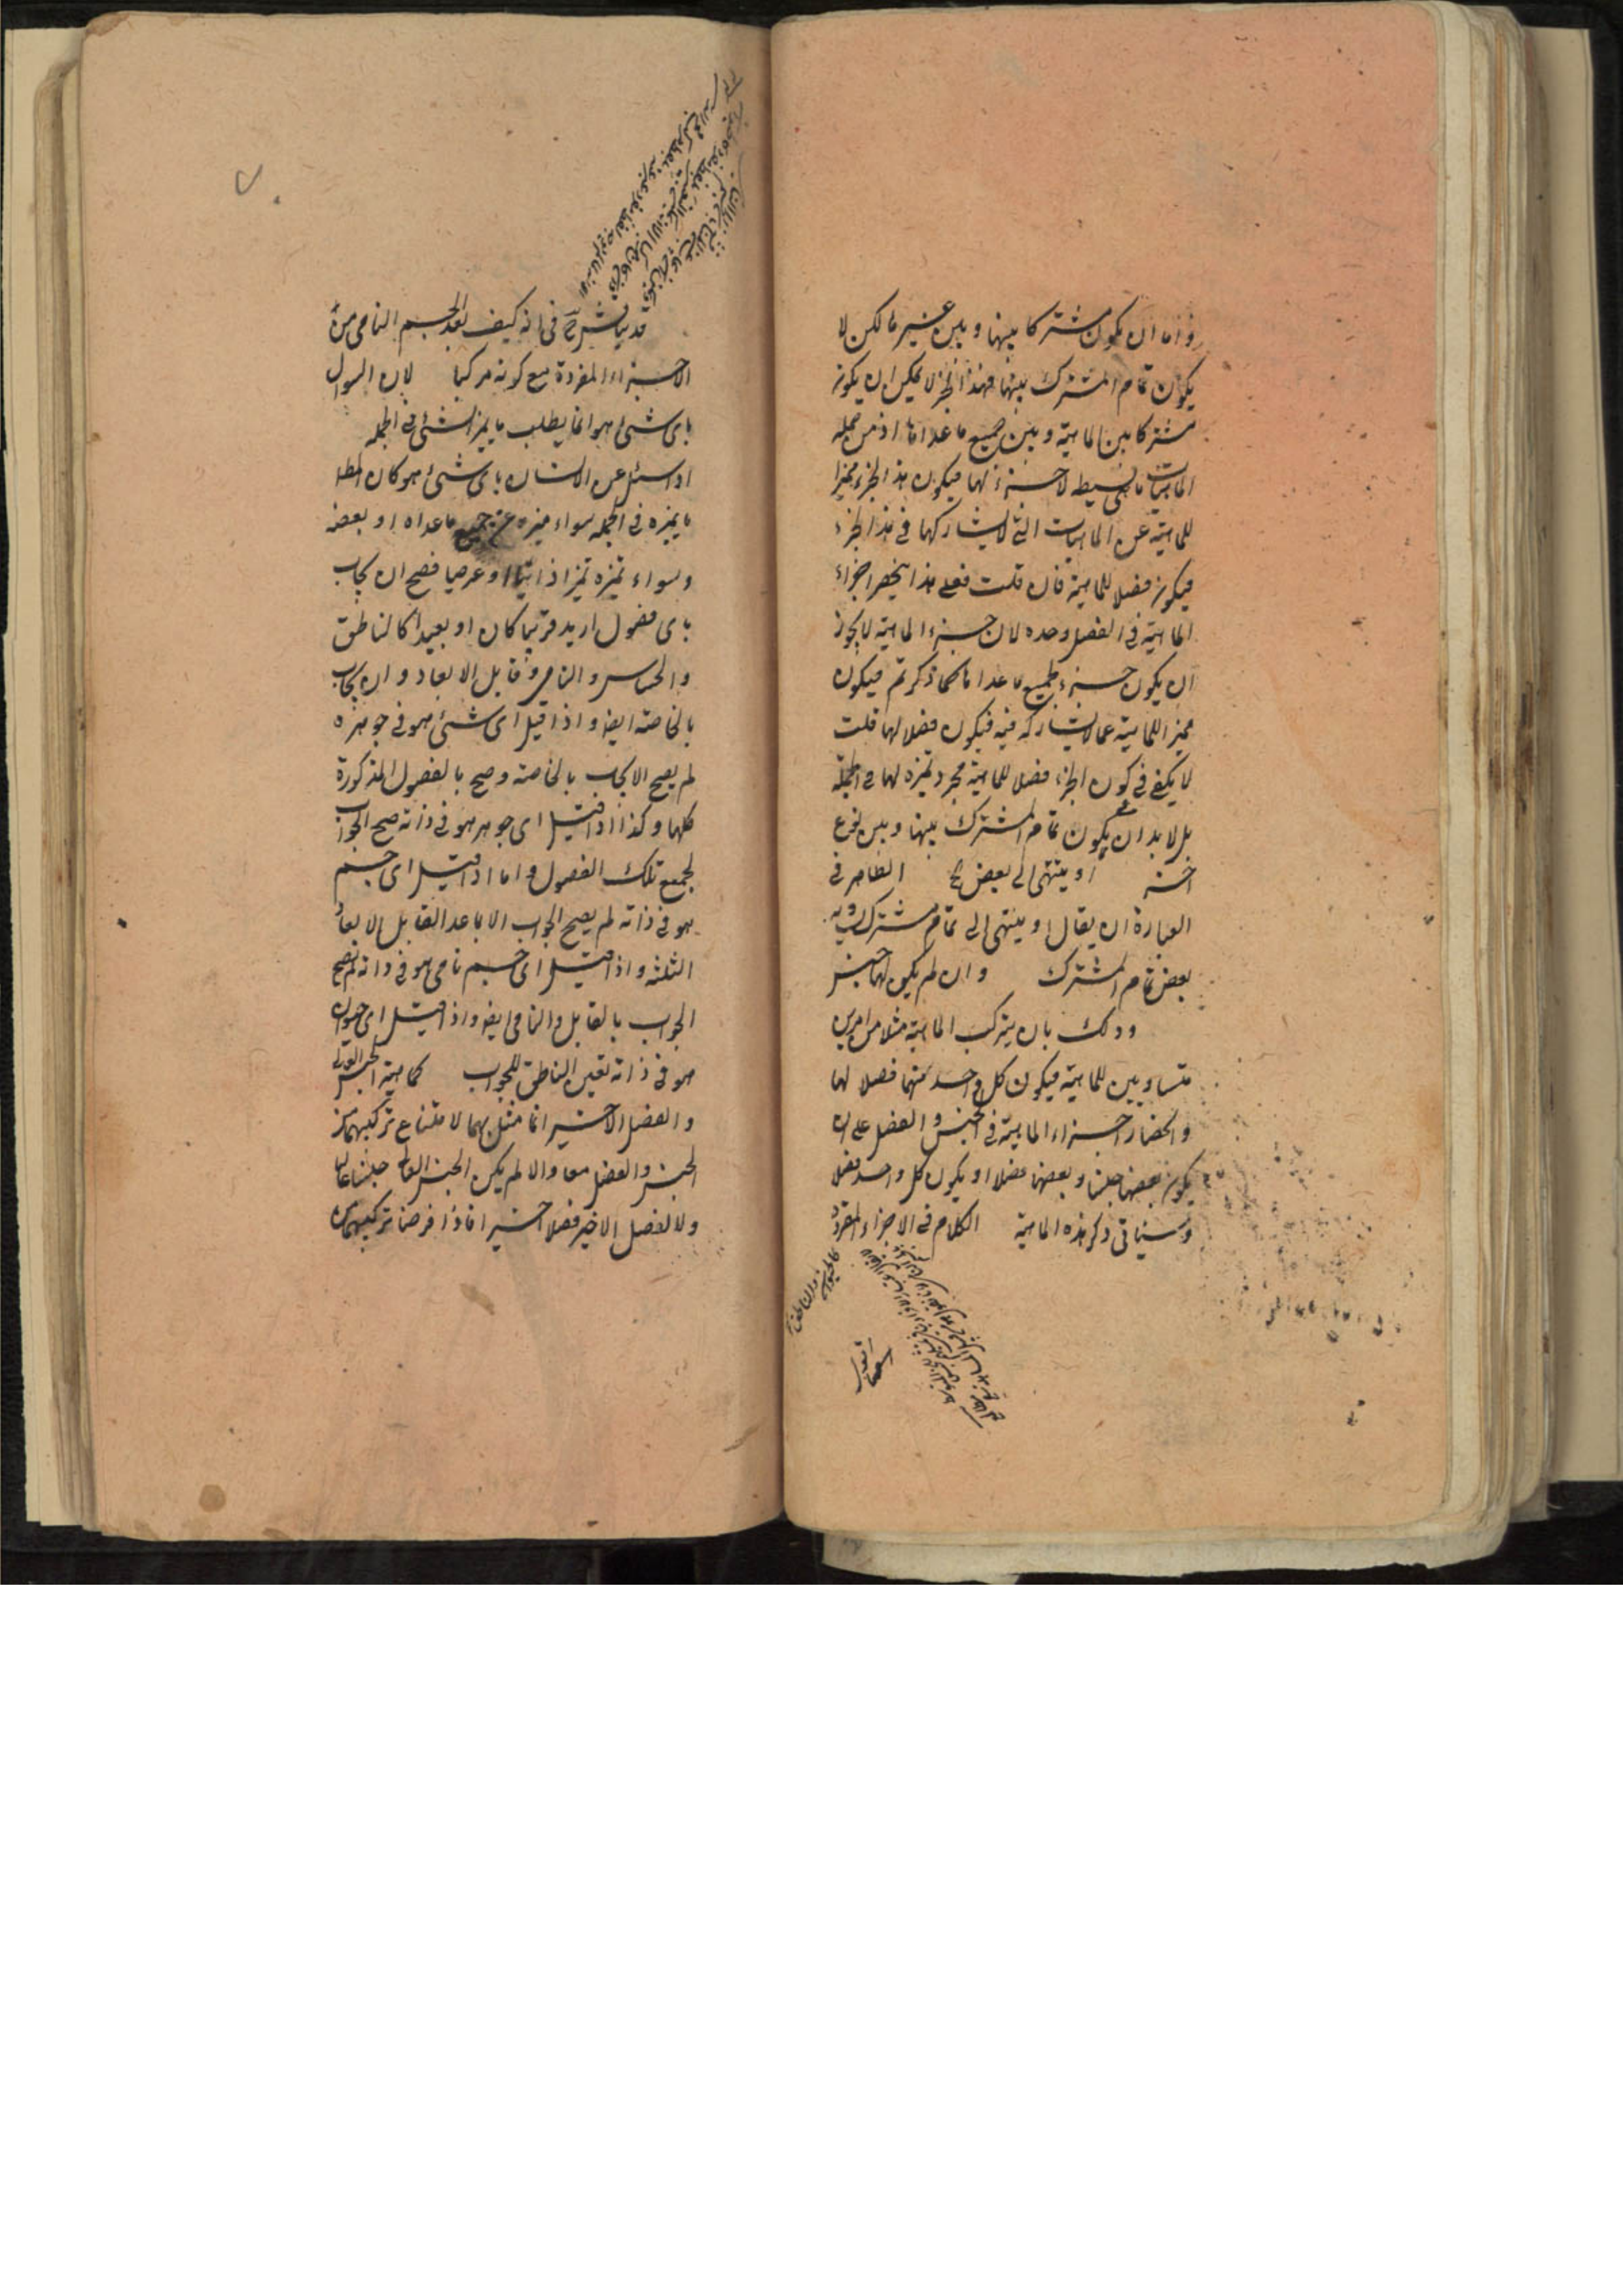 واما ان يكون مشتركا بينها وبين غيرها لكن لا
يكون تمام المشترك بينها فهذا الجزء لا يمكن ان يكون
مشتركا بين الماهية وبين جميع ما عداها اذ من جملة
الماهيات ما هى بسيطه لا جزء لها فيكون هذا الجزء مميزا
للماهية عن الماهيات التى لا يشاركها فى هذا الجزء
فيكون فصلا للماهية فان قلت فعلى هذا ينحصر اجزاء
الماهية فى الفصل وحده لان جزء الماهية لا يجوز
ان يكون جزء لجميع ما عداها كما ذكرتم فيكون
مميزا للماهية عما لا يشاركه فيه فيكون فصلا لها قلت
لا يكفى فى كون الجزء فصلا للماهية مجرد تميزه لها فى الجملة
بل لا بد ان يكون تمام المشترك بينها وبين نوع
اخر او ينتهى الى بعض الظاهر فى
العبارة ان يقال او ينتهى الى تمام مشترك يساويه
بعض تمام المشترك وان لم يكن لها جنس
وذلك بان يتركب الماهية مثلا من امرين
متساويين للماهية فيكون كل واحد منهما فصلا لها
وانحصار اجزاء الماهية فى الجنس والفصل على ان
يكون بعضها جنسا وبعضها فصلا او يكون كل واحد فصلا
وسياتى ذكر هذه الماهية الكلام فى الاجزاء المفردة
قد يناقش فى انه كيف يعد الجسم النامى من
الاجزاء المفردة مع كونه مركبا لان السوال
باى شئ هو انما يطلب ما يميز الشئ فى الجملة
اذا سئل عن الانسان باى شئ هو كان المطلوب
ما يميزه فى الجملة سواء ميزه عن جميع ما عداه او بعضه
وسواء تميزه تميزا ذاتيا او عرضيا فصح ان يجاب
باى فصول اريد قريبا كان او بعيدا كالناطق
والحساس والنامى وقابل الابعاد وان يجاب
بالخاصة ايضا واذا قيل اى شئ هو فى جوهره
لم يصح الايجاب بالخاصة وصح بالفصول المذكورة
كلها وكذا اذا قيل اى جوهر هو فى ذاته صح الجواب
لجميع تلك الفصول واما اذا قيل اى جسم
هو فى ذاته لم يصح الجواب الا بما عدا القابل للابعاد
الثلثة واذا قيل اى جسم نامى هو فى ذاته لم يصح
الجواب بالقابل والنامى ايضا واذا قيل اى حيوان
هو فى ذاته تعين الناطق للجواب كماهية الجنس العالى
والفصل الاخير انما مثل بهما لامتناع تركيبهما من
الجنس والفصل معا والا لم يكن الجنس العالى جنسا عاليا
ولا الفصل الاخير فصلا اخيرا فاذا فرضنا تركيبهما
كالحيوان والناطق